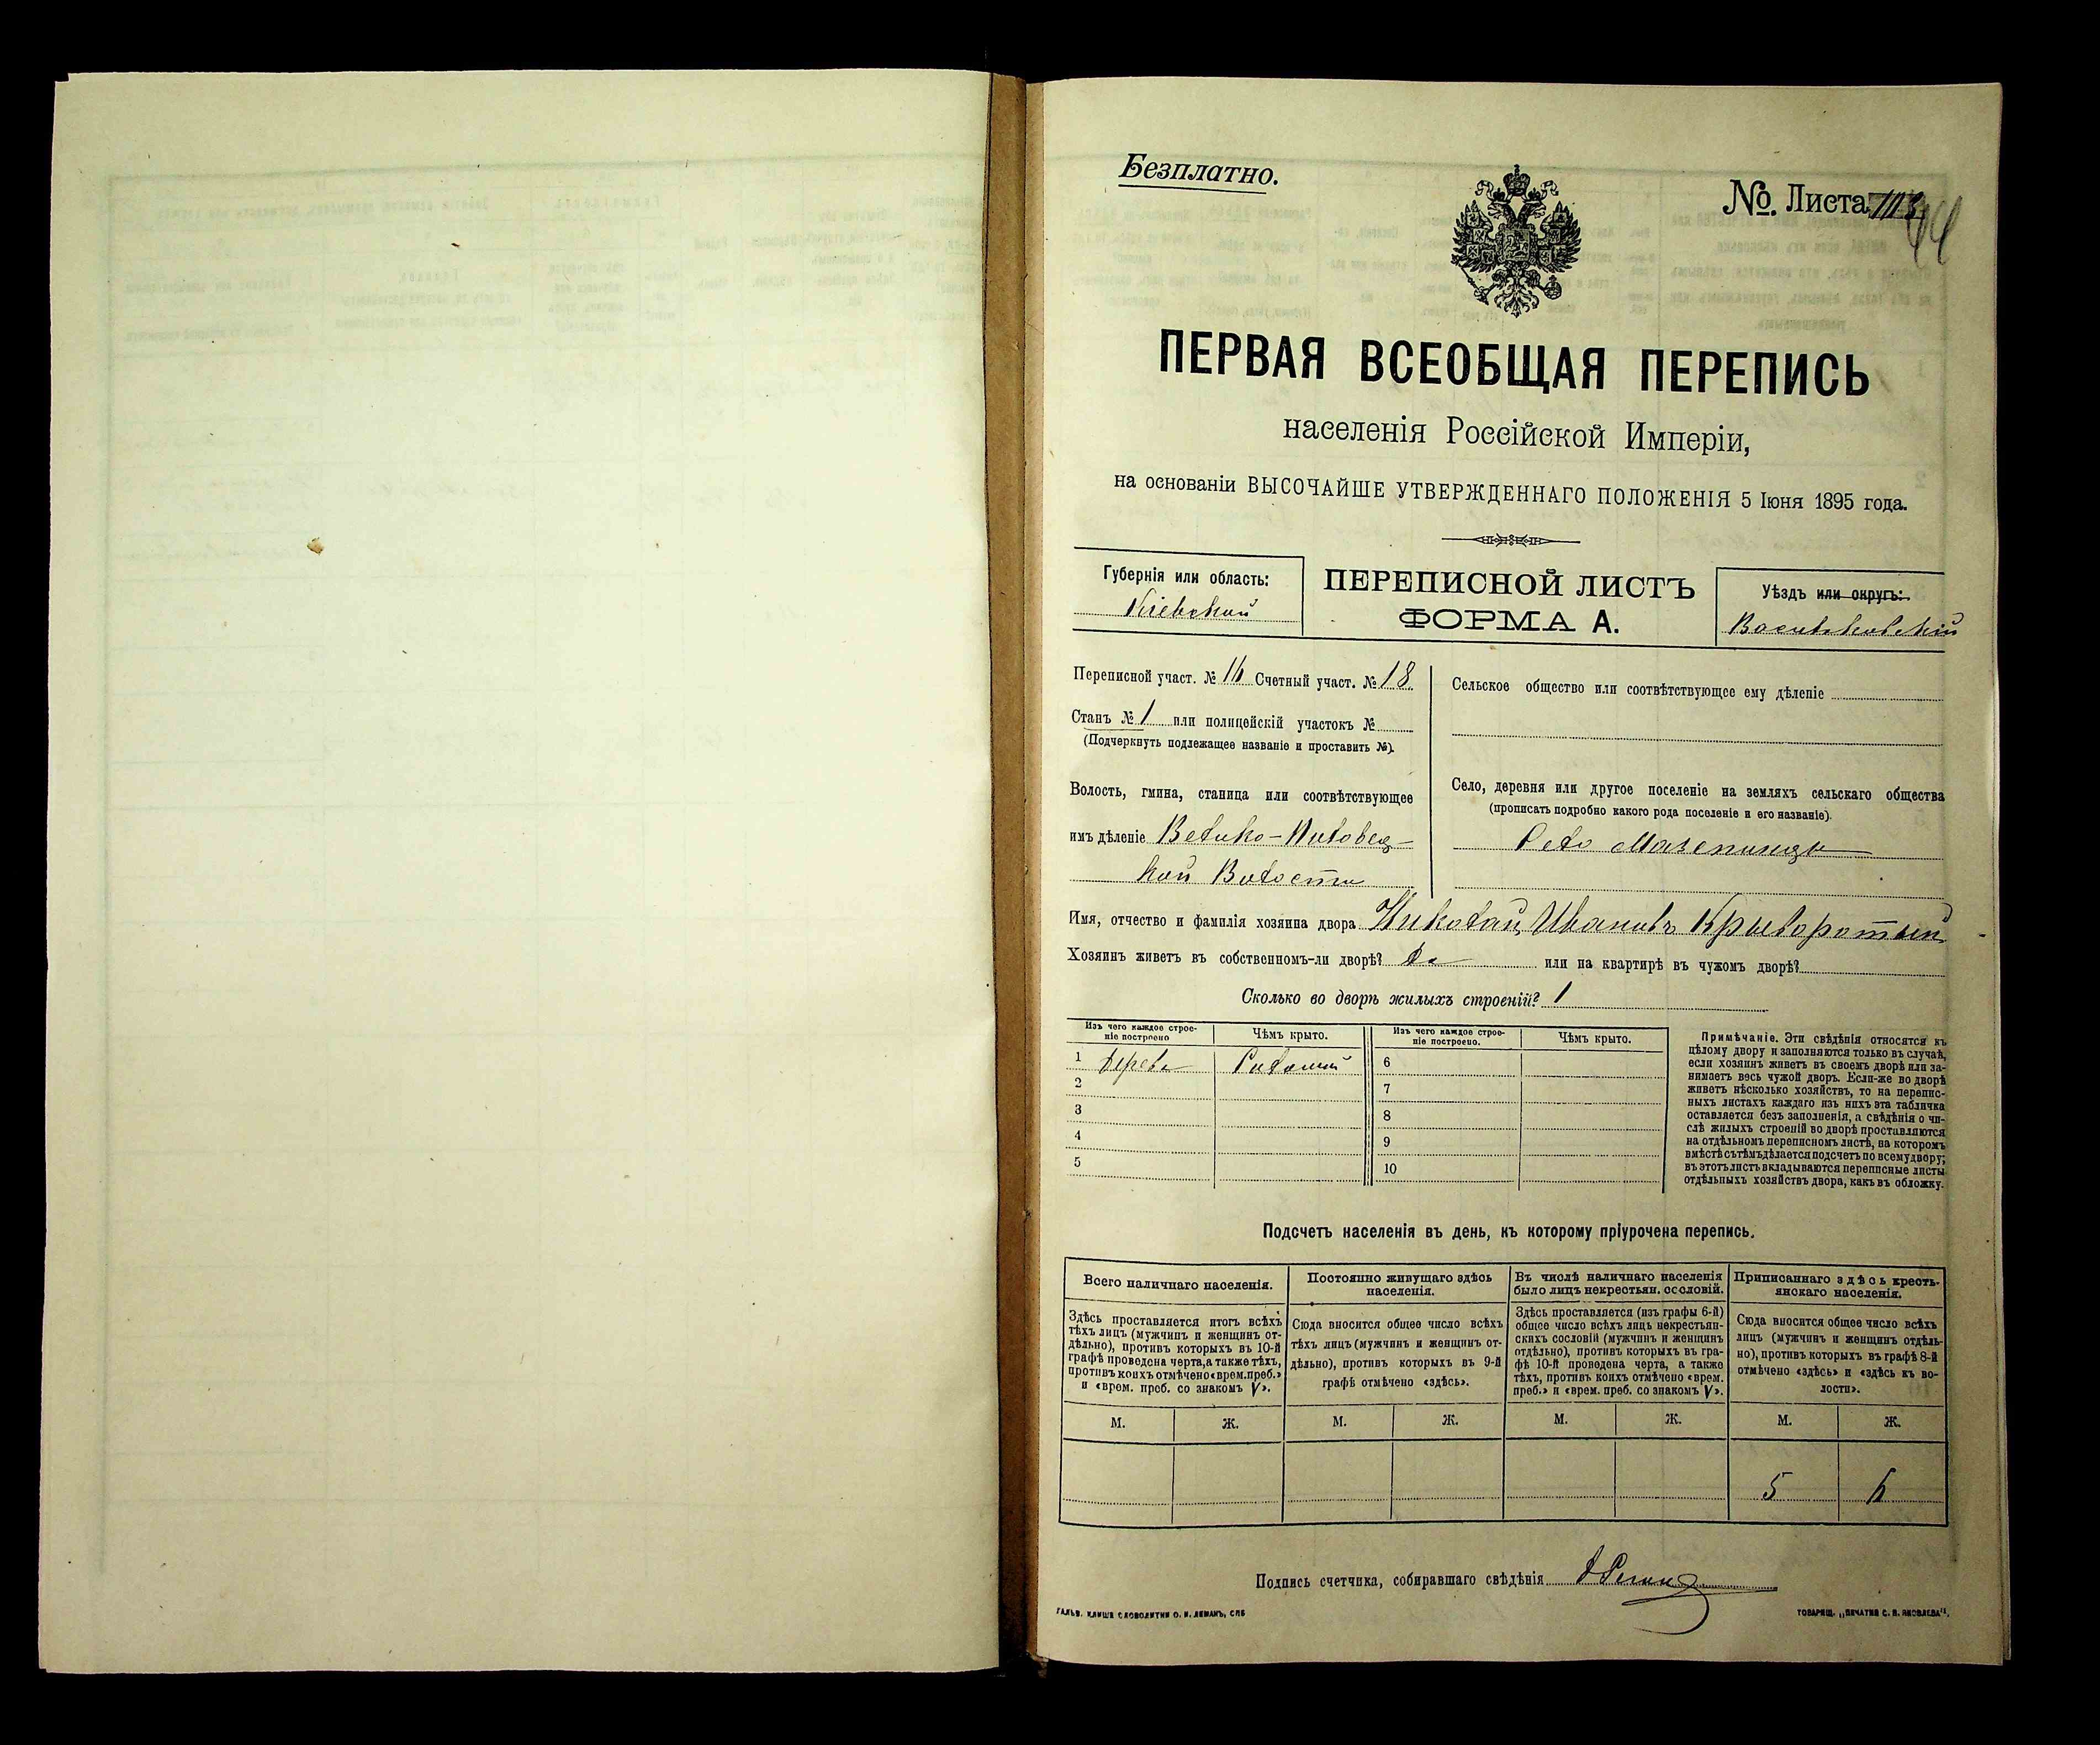 Безплатно.
№. Листа
ПЕРВАЯ ВСЕОБЩАЯ ПЕРЕПИСЬ
населенія Россійской Имперіи,
на основаніи ВЫСОЧАЙШЕ УТВЕРЖДЕННАГО ПОЛОЖЕНІЯ 5 Іюня 1895 года.
Губернія или область:
Кіевской
ПЕРЕПИСНОЙ ЛИСТЪ
ФОРМА А.
Уѣздъ или округъ:
Васильковскій
Переписной участ. № 16 Счетный участ. № 18
Станъ № 1 или полицейскій участокъ №
(Подчеркнуть подлежащее названіе и проставить №).
Волость, гмина, станица или соотвѣтствующее
имъ дѣленіе Велико-Половец-
кой Волости
Сельское общество или соотвѣтствующее ему дѣленіе
Село, деревня или другое поселеніе на земляхъ сельскаго общества
(прописать подробно какого рода поселеніе и его названіе).
Село Мазепинцы
Имя, отчество и фамилія хозяина двора Николай Ивановъ Крыворотый
Хозяинъ живетъ въ собственномъ-ли дворѣ? Да или на квартирѣ въ чужомъ дворѣ?
Сколько во дворѣ жилыхъ строеній? 1
Изъ чего каждое строе-
ніе построено
Чѣмъ крыто.
Изъ чего каждое строе-
ніе построено.
Чѣмъ крыто.
1 Дерева Соломой 6
2 7
3 8
4 9
5 10
Примѣчаніе. Эти свѣдѣнія относятся къ
цѣлому двору и заполняются только въ случаѣ,
если хозяинъ живетъ въ своемъ дворѣ или за-
нимаетъ весь чужой дворъ. Если-же во дворѣ
живетъ нѣсколько хозяйствъ, то на перепис-
ныхъ листахъ каждаго изъ нихъ эта табличка
оставляется безъ заполненія, а свѣдѣнія о чи-
слѣ жилыхъ строеній во дворѣ проставляются
на отдѣльномъ переписномъ листѣ, на которомъ
вмѣстѣ съ тѣмъ дѣлается подсчетъ по всему двору;
въ этотъ листъ вкладываются переписные листы
отдѣльныхъ хозяйствъ двора, какъ въ обложку.
Подсчетъ населенія въ день, къ которому пріурочена перепись.
Всего наличнаго населенія.
Здѣсь проставляется итогъ всѣхъ
тѣхъ лицъ (мужчинъ и женщинъ от-
дѣльно), противъ которыхъ въ 10-й
графѣ проведена черта, а также тѣхъ,
противъ коихъ отмѣчено «врем. преб.»
и «врем. преб. со знакомъ V».
Постоянно живущаго здѣсь
населенія.
Сюда вносится общее число всѣхъ
тѣхъ лицъ (мужчинъ и женщинъ от-
дѣльно), противъ которыхъ въ 9-й
графѣ отмѣчено «здѣсь».
Въ числѣ наличнаго населенія
было лицъ некрестьян. сословій.
Здѣсь проставляется (изъ графы 6-й)
общее число всѣхъ лицъ некрестьян-
скихъ сословій (мужчинъ и женщинъ
отдѣльно), противъ которыхъ въ гра-
фѣ 10-й проведена черта, а также
тѣхъ, противъ коихъ отмѣчено «врем.
преб.» и «врем. преб. со знакомъ V».
Приписаннаго здѣсь кресть-
янскаго населенія.
Сюда вносится общее число всѣхъ
лицъ (мужчинъ и женщинъ отдѣль-
но), противъ которыхъ въ графѣ 8-й
отмѣчено «здѣсь» и «здѣсь къ во-
лости».
М. Ж. М. Ж. М. Ж. М. Ж.
5 6
Подпись счетчика, собиравшаго свѣдѣнія
ГАЛЬВ. КЛИШЕ СЛОВОЛИТНИ О. И. ЛЕМАНЪ, СПБ
ТОВАРИЩ. „ПЕЧАТНЯ С. П. ЯКОВЛЕВА“.